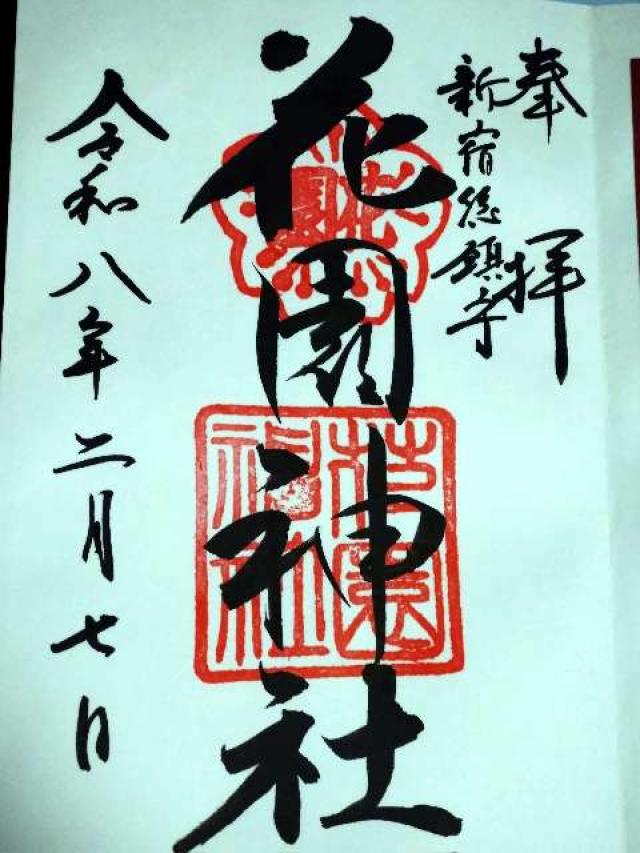 奉拝
新宿総鎮守
花園神社
花園神社
令和八年二月七日